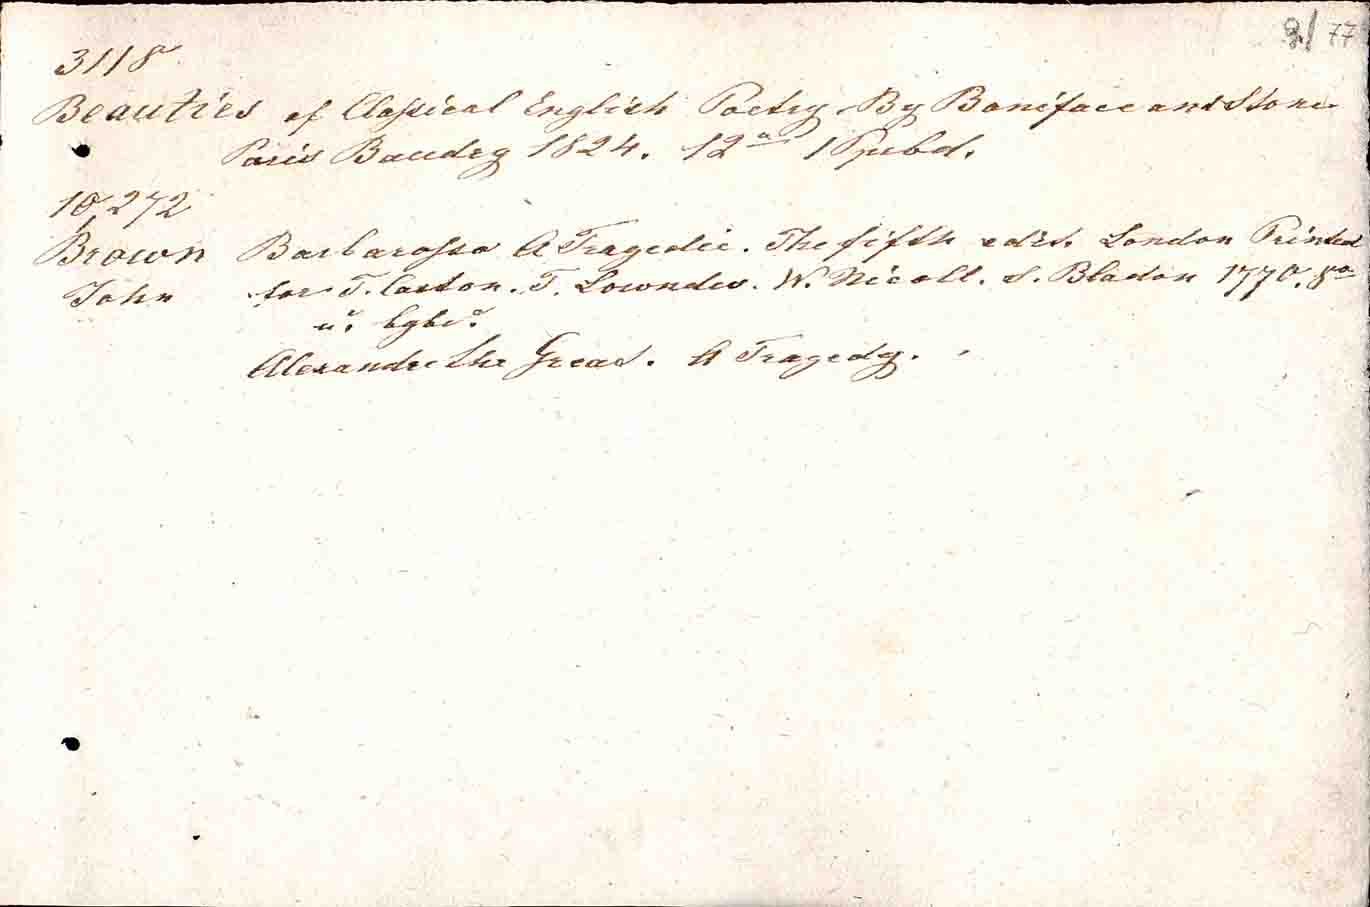 9./77
3118
Beauties of Classical English Poetry By Boniface and Stone
Paris Baudry 1824. 12º 1 Ppbd.
10,272
Brown Barbarossa A Tragedie. The fifth edit. London Printed
John for T. Caston. T. Lowndes. W. Nicoll. S. Bladon 1770. 8º
Alexandre the Great. A Tragedy.